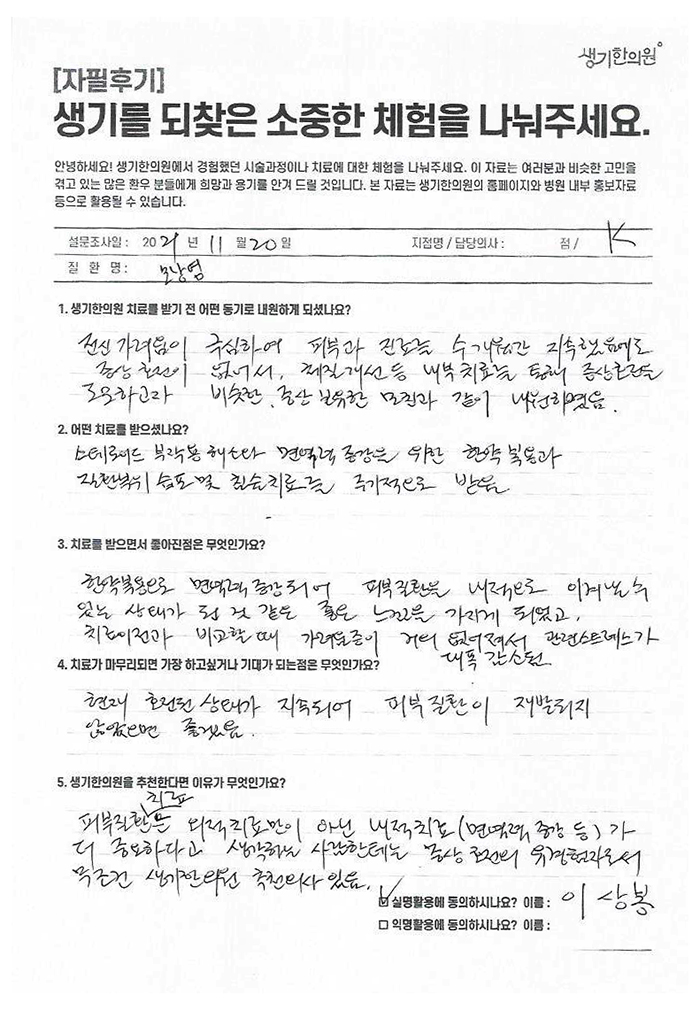 생기한의원
[자필후기]
생기를 되찾은 소중한 체험을 나눠주세요.
안녕하세요! 생기한의원에서 경험했던 시술과정이나 치료에 대한 체험을 나눠주세요. 이 자료는 여러분과 비슷한 고민을
겪고 있는 많은 환우 분들에게 희망과 용기를 안겨 드릴 것입니다. 본 자료는 생기한의원의 홈페이지와 병원 내부 홍보자료
등으로 활용될 수 있습니다.
설문조사일 : 2021 년 11 월 20 일 지점명 / 담당의사 : 점 / K
질 환 명 : 모낭염
1. 생기한의원 치료를 받기 전 어떤 동기로 내원하게 되셨나요?
전신 가려움이 극심하여 피부과 진료를 수개월간 지속했음에도
증상호전이 없어서, 체질개선 등 내부치료를 통해 증상호전을
도모하고자 비슷한 증상 보유한 모친과 같이 내원하였음.
2. 어떤 치료를 받으셨나요?
스테로이드 부작용 해소와 면역력 증강을 위한 한약 복용과
질환부위 습포 및 침술치료를 주기적으로 받음
3. 치료를 받으면서 좋아진점은 무엇인가요?
한약복용으로 면역력 증강되어 피부질환을 내적으로 이겨낼 수
있는 상태가 된 것 같은 좋은 느낌을 가지게 되었고,
치료이전과 비교할 때 가려움증이 거의 없어져서 관련스트레스가
대폭 감소됨
4. 치료가 마무리되면 가장 하고싶거나 기대가 되는점은 무엇인가요?
현재 호전된 상태가 지속되어 피부질환이 재발되지
않았으면 좋겠음.
5. 생기한의원을 추천한다면 이유가 무엇인가요?
치료
피부질환은 외적치료만이 아닌 내적치료(면역력 증강 등)가
더 중요하다고 생각하는 사람한테는 증상호전의 유경험자로서
무조건 생기한의원 추천의사 있음.
☑ 실명활용에 동의하시나요? 이름 : 이상봉
□ 익명활용에 동의하시나요? 이름 :